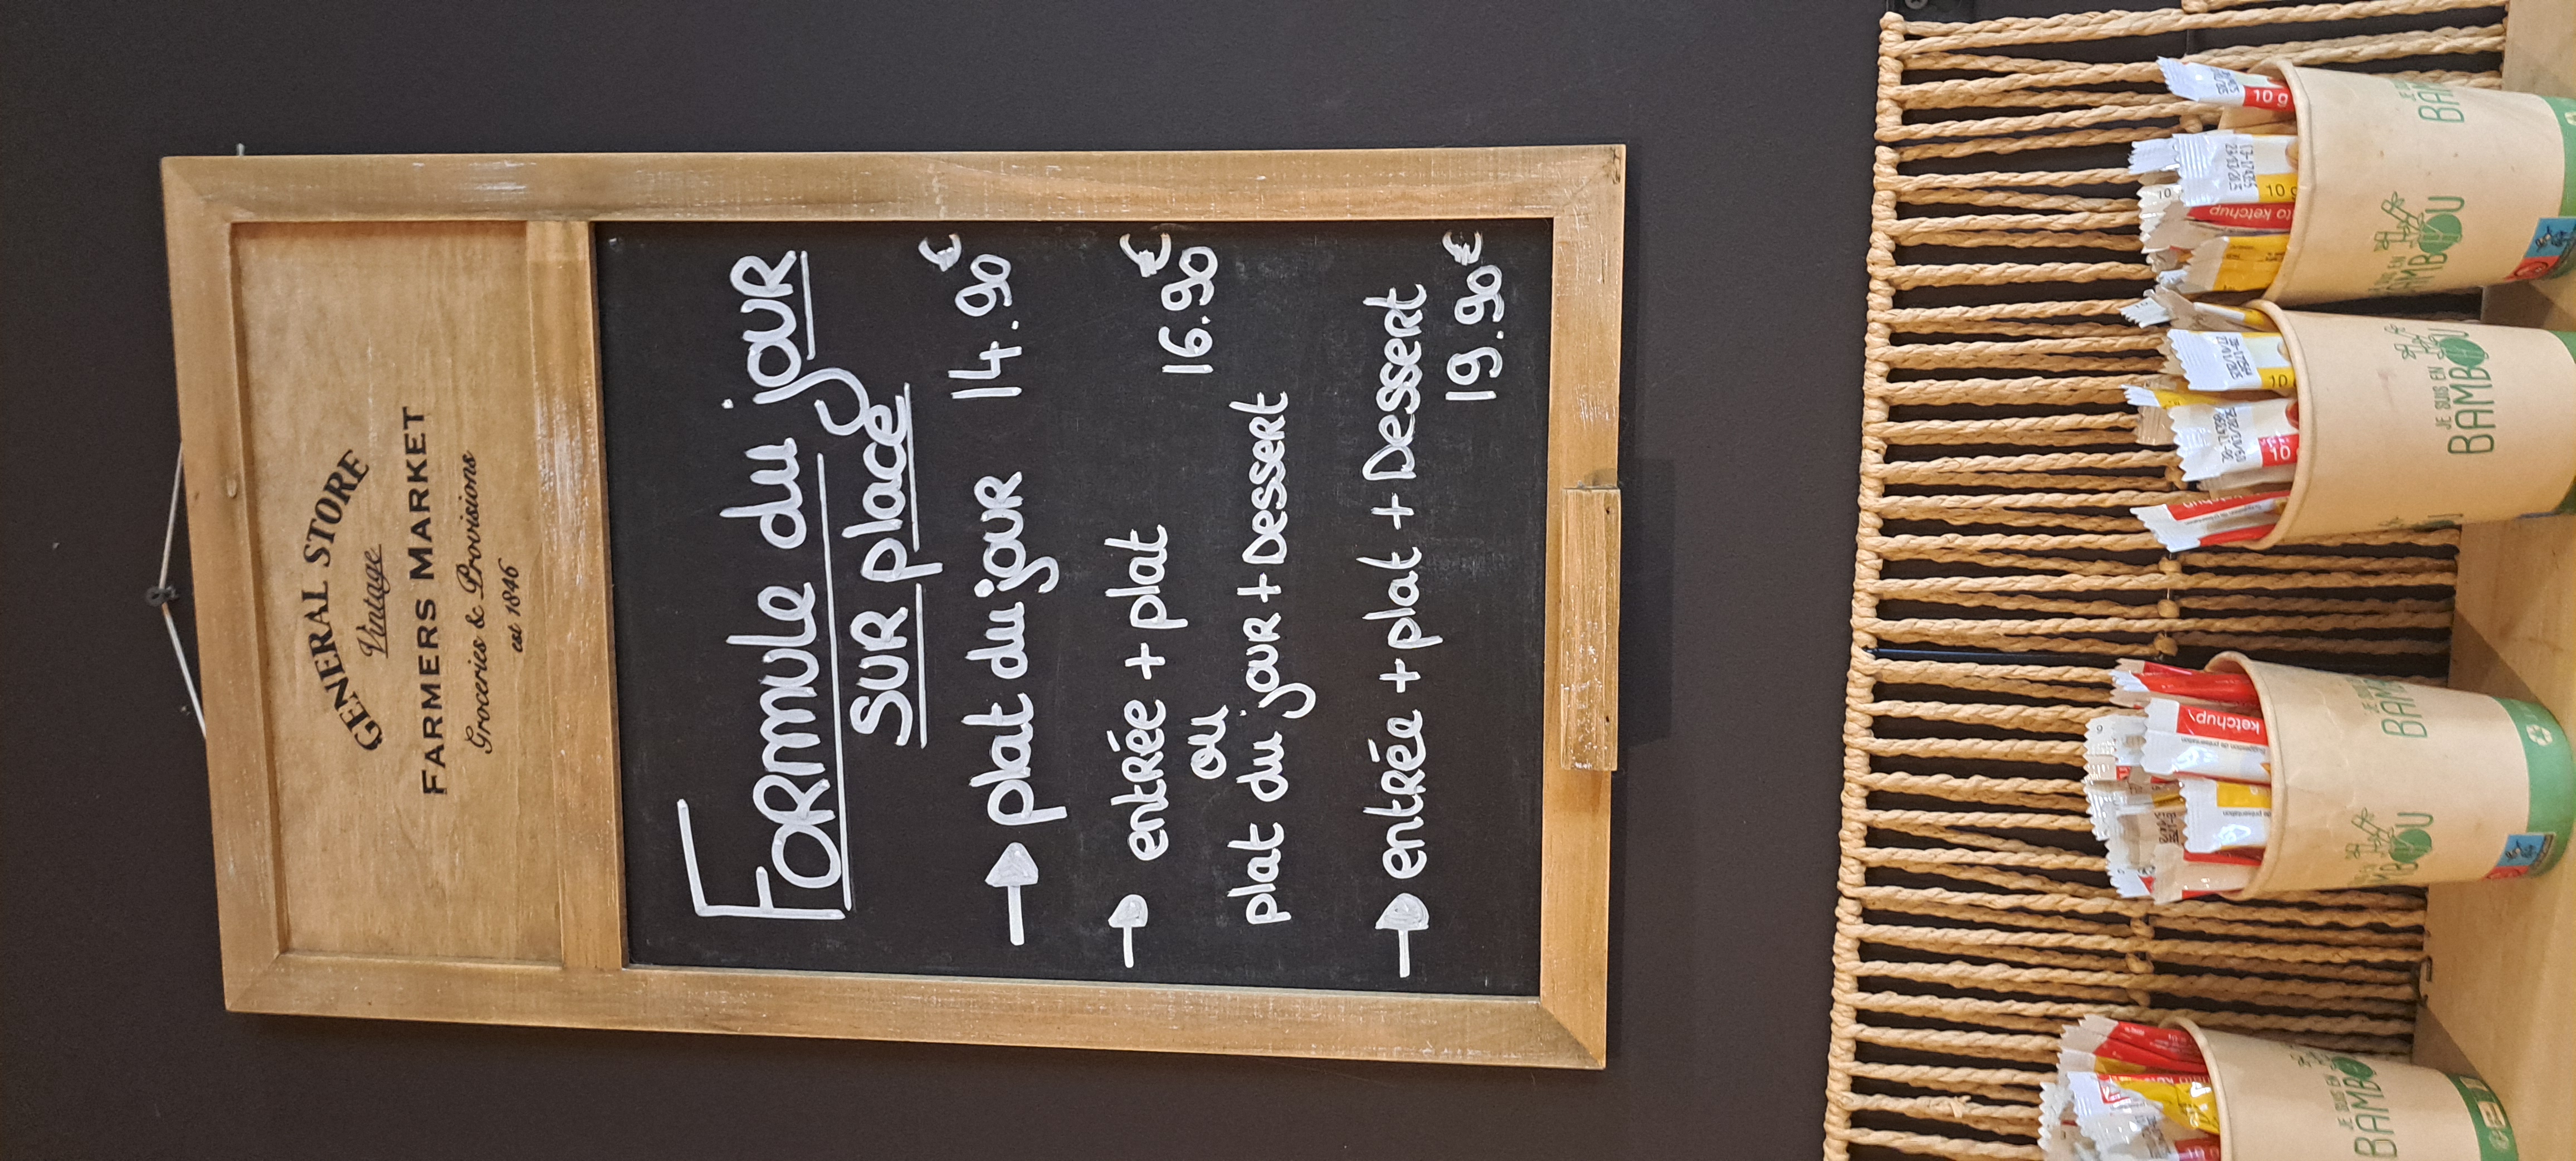 GENERAL STORE
Vintage
FARMERS MARKET
Groceries & Provisions
est 1846
Formule du jour
sur place
plat du jour 14.90€
entrée + plat 16.90€
ou
plat du jour + Dessert
entrée + plat + Dessert
19.90€
JE SUIS EN
BAMBOU
JE SUIS EN
BAMBOU
ketchup
10 g